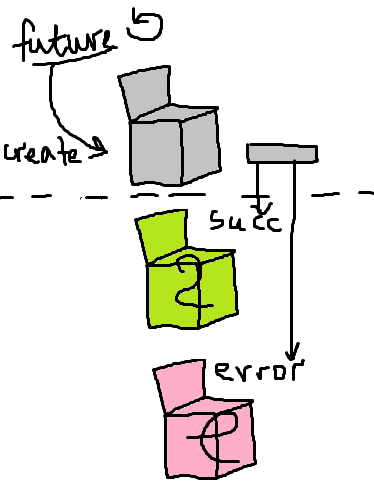 future
create
succ
2
error
e